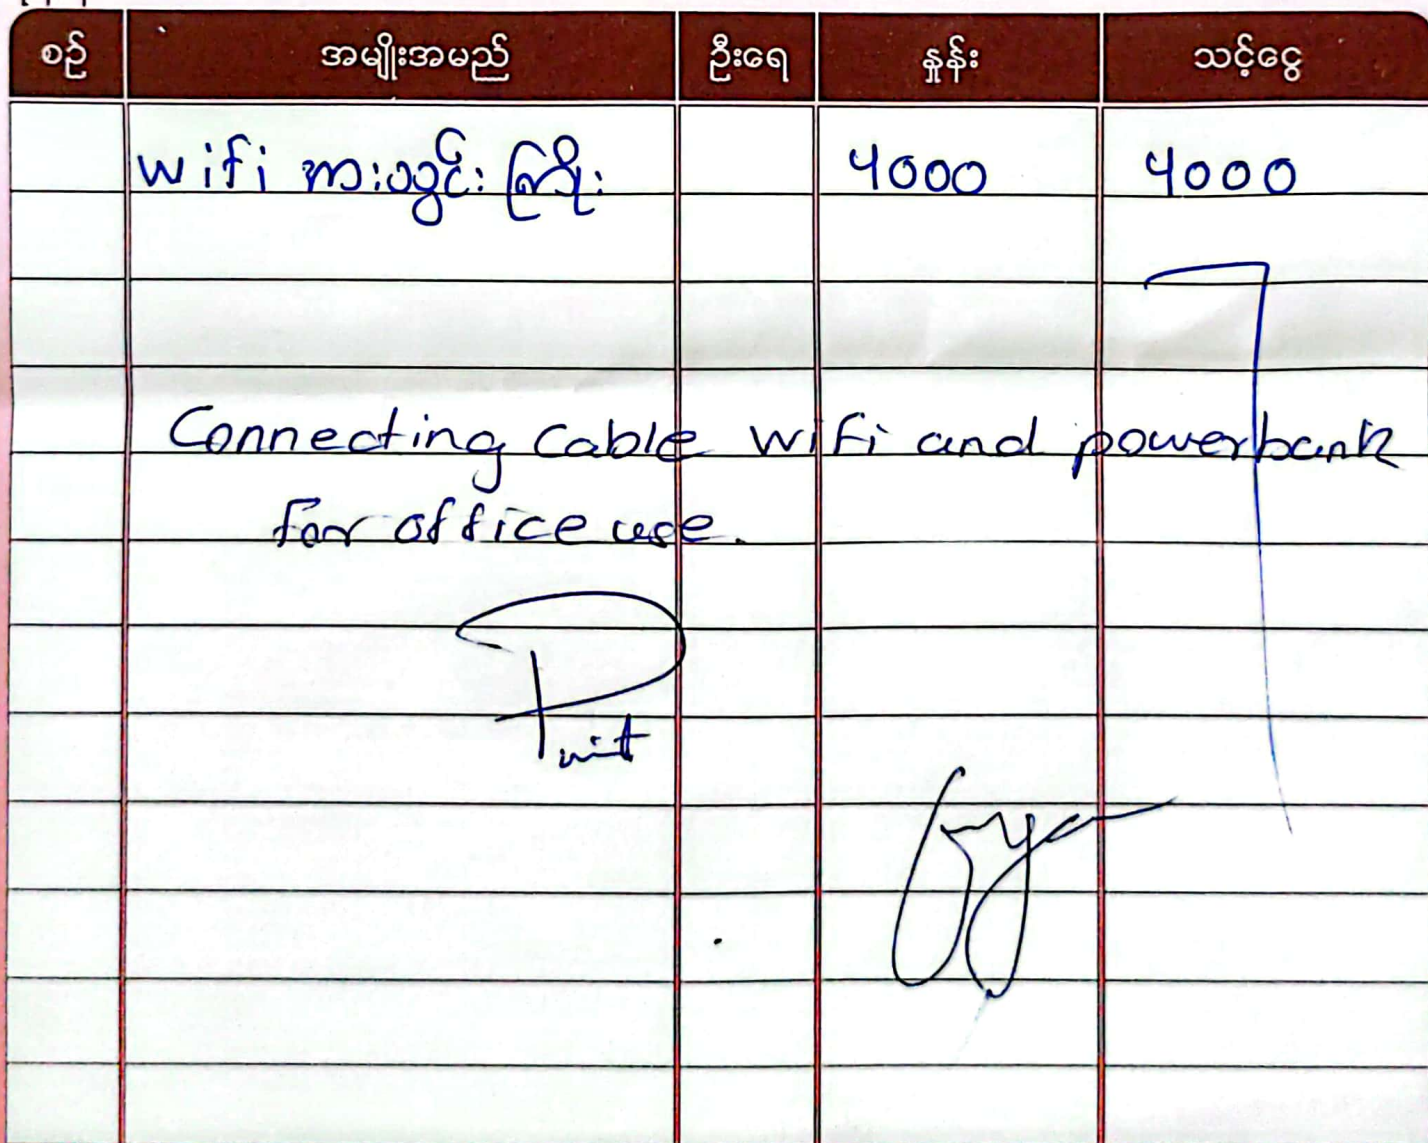 စဉ် အမျိုးအမည် ဦးရေ နှုန်း သင့်ငွေ
wifi အားသွင်း ကြိုး 4000 4000
Connecting Cable wifi and powerbank
for office use.